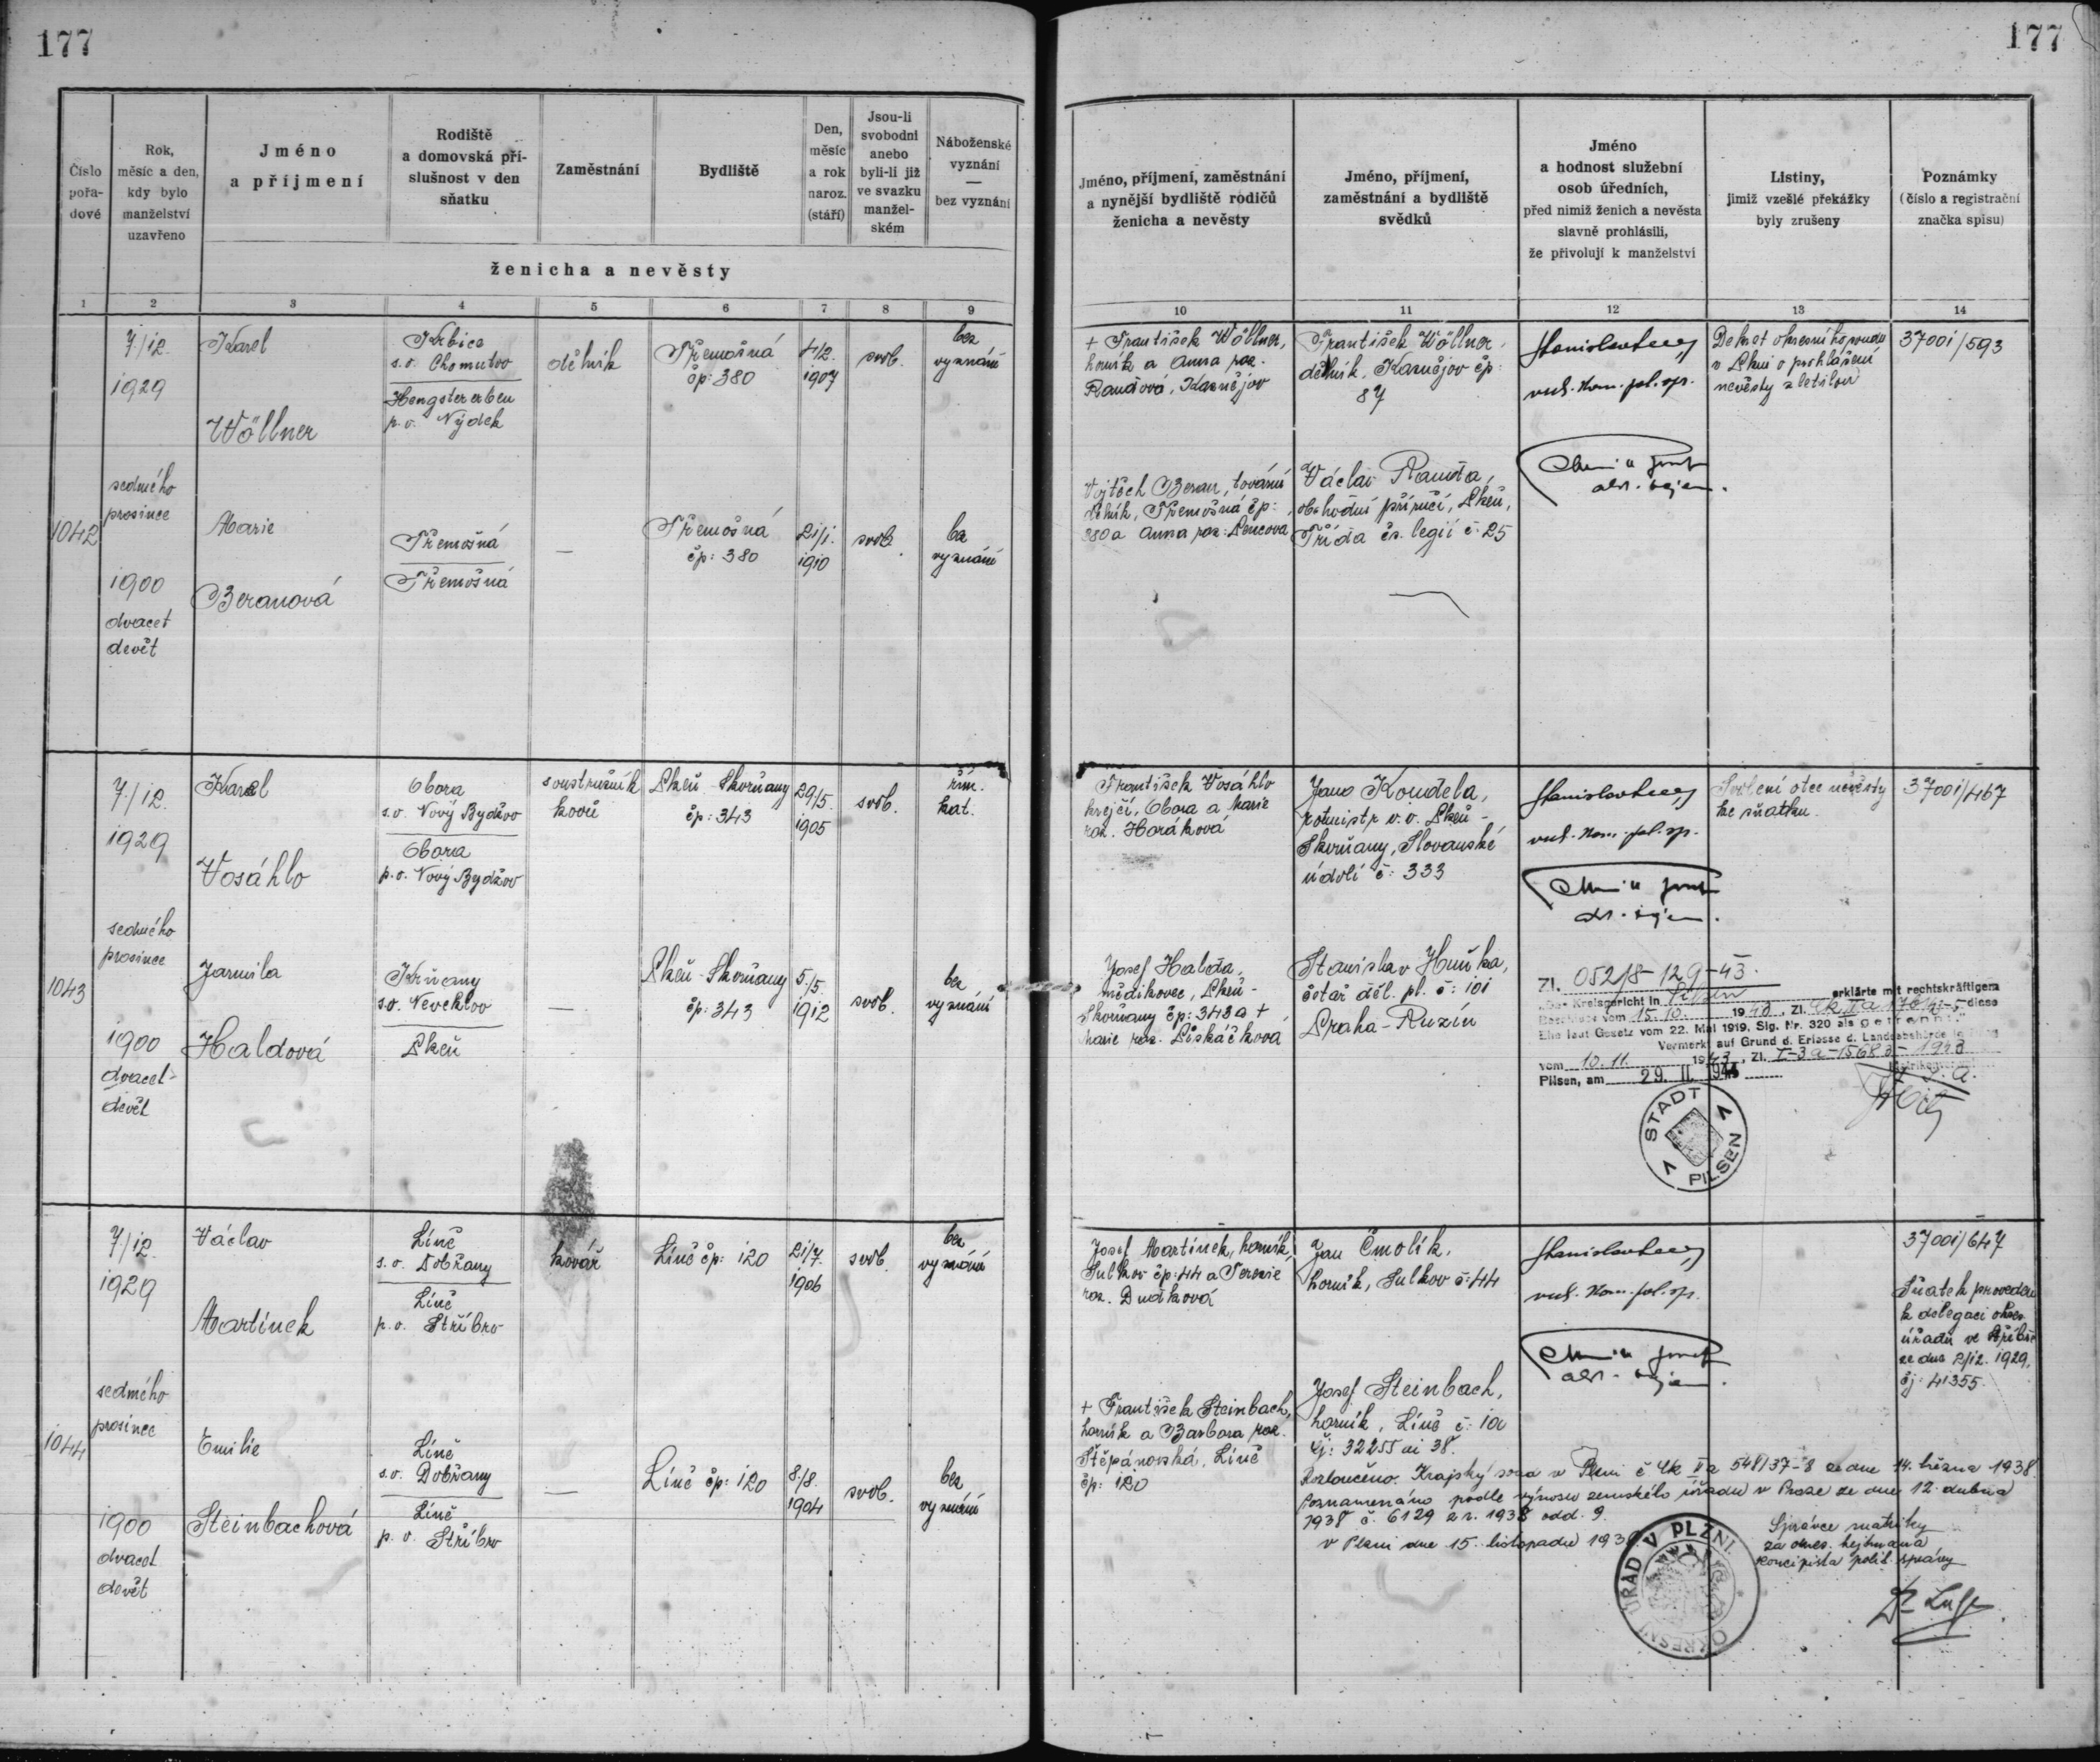 177
177
Číslo
pořa-
dové
Rok,
měsíc a den,
kdy bylo
manželství
uzavřeno
Jméno
a příjmení
Rodiště
a domovská pří-
slušnost v den
sňatku
Zaměstnání
Bydliště
Den,
měsíc
a rok
naroz.
(stáří)
Jsou-li
svobodni
anebo
byli-li již
ve svazku
manžel-
ském
Náboženské
vyznání
—
bez vyznání
ženicha a nevěsty
Jméno, příjmení, zaměstnání
a nynější bydliště rodičů
ženicha a nevěsty
Jméno, příjmení,
zaměstnání a bydliště
svědků
Jméno
a hodnost služební
osob úředních,
před nimiž ženich a nevěsta
slavně prohlásili,
že přivolují k manželství
Listiny,
jimiž vzešlé překážky
byly zrušeny
Poznámky
(číslo a registrační
značka spisu)
1 2 3 4 5 6 7 8 9 10 11 12 13 14
1042
7./12.
1929
sedmého
prosince
1900
dvacet
devět
Karel
Wöllner
Krbice
s.o. Chomutov
Hengstererben
p.o. Nýdek
dělník
Třemošná
čp: 380
4/2.
1907
svob.
bez
vyznání
Marie
Beranová
Třemošná
Třemošná
—
Třemošná
čp: 380
21/1.
1910
svob.
bez
vyznání
+ František Wöllner,
horník a Anna roz.
Raudova, Kaznějov
Vojtěch Beran, tovární
dělník, Třemošná čp:
380 a Anna roz: Pencova
František Wöllner,
dělník, Kaznějov čp:
87
Václav Rauda,
obchodní příručí, Plzeň,
Třída čs. legií č: 25
Dekret okresního soudu
v Plzni o prohlášení
nevěsty zletilou
3700i/593
1043
7./12.
1929
sedmého
prosince
1900
dvacet-
devět
Karel
Vosáhlo
Obora
s.o. Nový Bydžov
Obora
p.o. Nový Bydžov
soustružník
kovů
Plzeň-Skvrňany
čp: 343
29/5.
1905
svob.
řím.
kat.
Jarmila
Haldová
Krňany
s.o. Neveklov
Plzeň
—
Plzeň-Skvrňany
čp: 343
5./5.
1912
svob.
bez
vyznání
František Vosáhlo
krejčí, Obora a Marie
roz. Horáková
Josef Halda,
mědikovec, Plzeň-
Skvrňany čp: 343 a +
Marie roz. Piskáčková
Jano Koudela,
rotmistr v.v. Plzeň-
Skvrňany, Slovanské
údolí č: 333
Stanislav Huňka,
četař děl. pl. č: 101
Praha-Ruzín
Svolení otce nevěsty
ke sňatku.
3700i/467
Zl. 052/8-129-43.
Das Kreisgericht in Pilsen erklärte mit rechtskräftigem
Beschluss vom 15.10. 1943, Zl. diese
Ehe laut Gesetz vom 22. Mai 1919, Slg. Nr. 320 als getrennt."
Vermerkt auf Grund d. Erlasses d. Landesbehörde
vom 10.11. 1943, Zl. I-3a-15683-1943
Pilsen, am 29. II. 1944
STADT PILSEN
1044
7./12.
1929
sedmého
prosince
1900
dvacet
devět
Václav
Martínek
Líně
s.o. Dobřany
Líně
p.o. Stříbro
kovář
Líně čp: 120
21/7.
1906
svob.
bez
vyznání
Emilie
Steinbachová
Líně
s.o. Dobřany
Líně
p.o. Stříbro
—
Líně čp: 120
8./8.
1904
svob.
bez
vyznání
Josef Martínek, horník,
Sulkov čp: 44 a Terezie
roz. Dudková
+ František Steinbach,
horník a Barbora roz.
Štěpánovská, Líně
čp: 120
Jan Čmolík,
horník, Sulkov č: 44
Josef Steinbach,
horník, Líně č:
Čj: 32255 ai 38.
Rozloučeno. Krajský soud v Plzni č Ck Va 548/37-8 ze dne 14. března 1938
Poznamenáno podle výnosu zemského úřadu v Praze ze dne 12. dubna
1938 č. 6129 z r. 1938 odd. 9.
V Plzni dne 15. listopadu 1938
Správce matriky
za okres. hejtmana
koncipista polit. správy
3700i/647
Sňatek proveden
k delegaci okres.
úřadu ve Stříbře
ze dne 2/12. 1929,
čj: 41355.
OKRESNÍ ÚŘAD V PLZNI